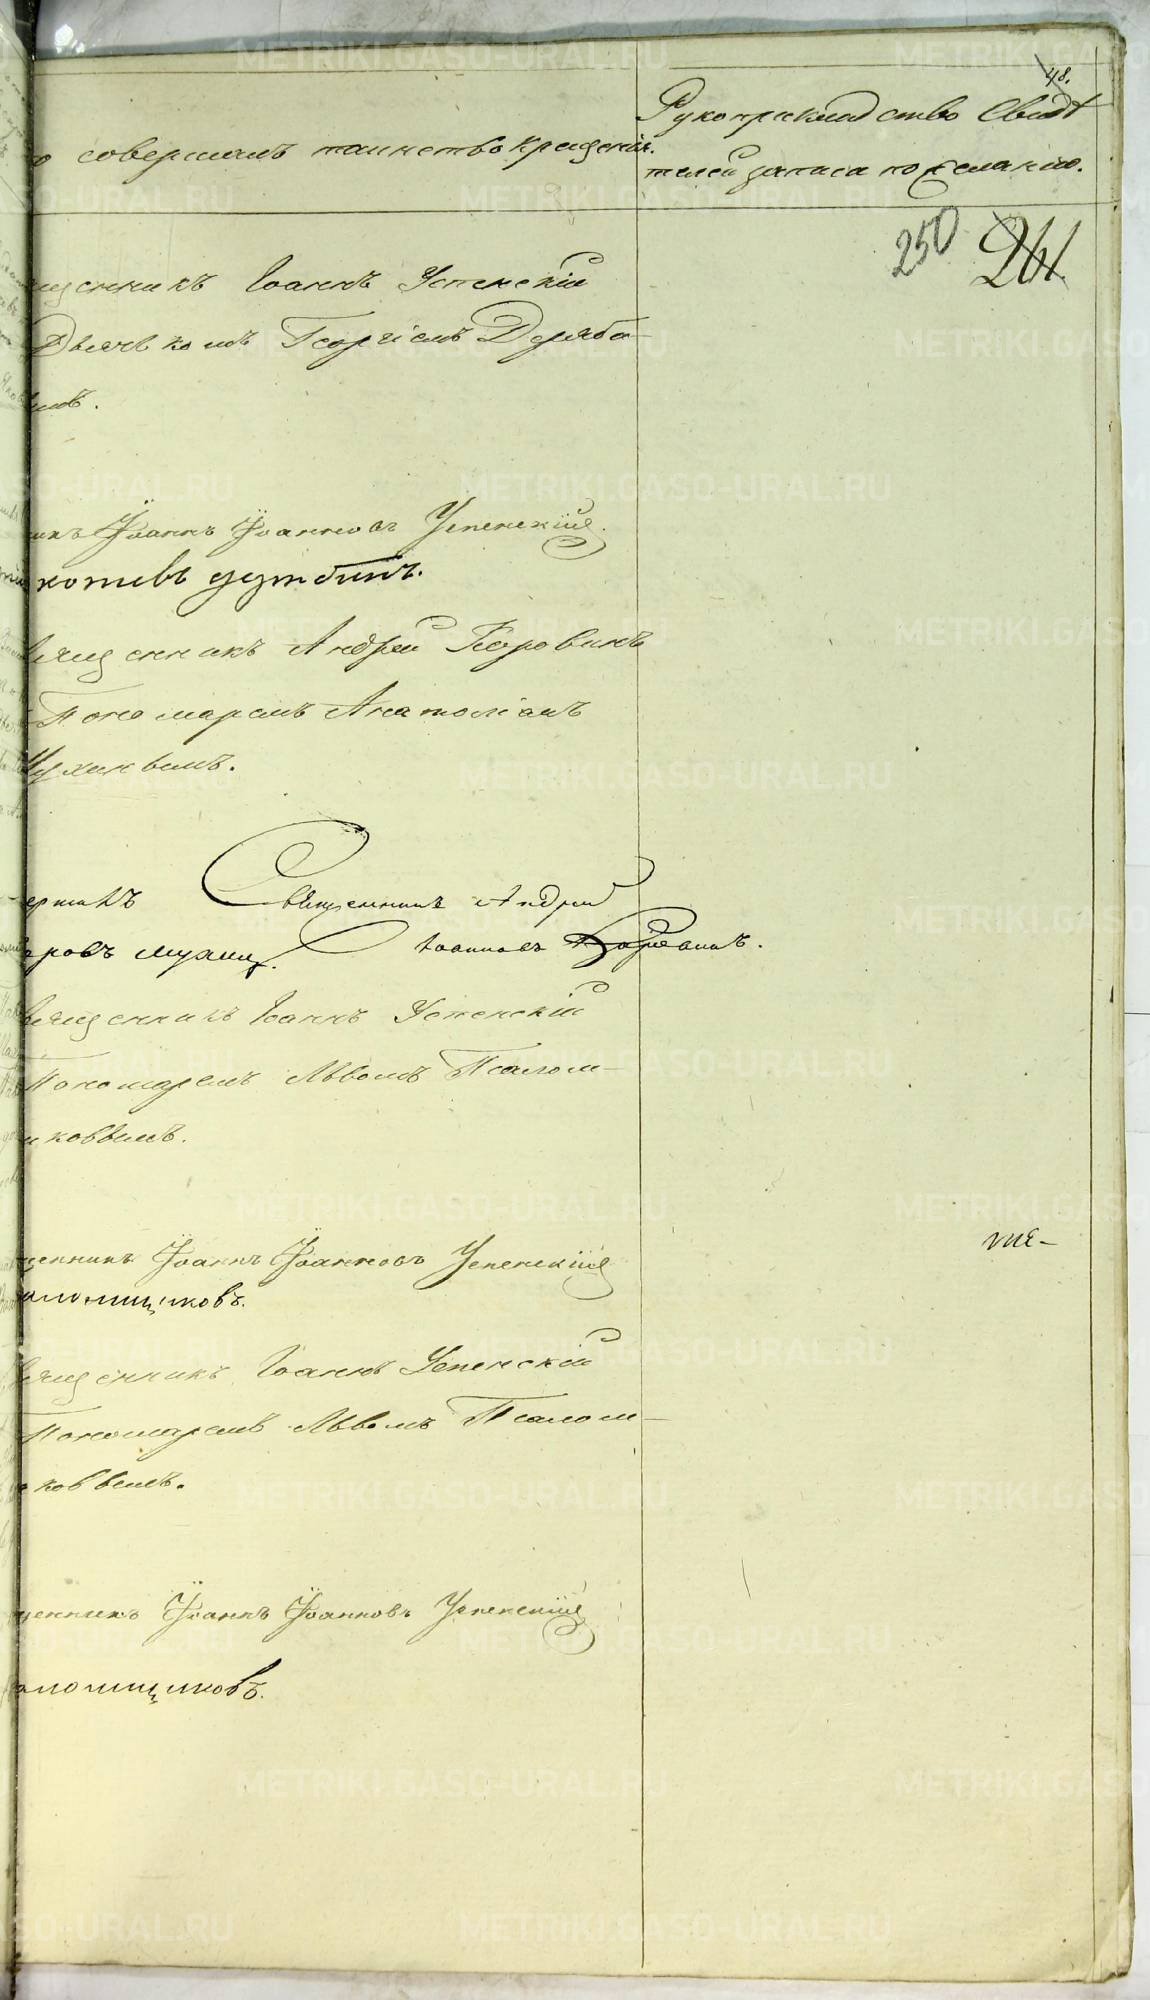 48.
о совершалъ таинство крещенія.
Рукоприкладство Свидѣ
телей записи по желанію.
250 261
щенникъ Іоаннъ Успенскій
Дьячкомъ Георгіемъ Деряби-
ымъ.
икъ Іоаннъ Іоанновъ Успенскій.
Священникъ Андрей Боровинъ
Пономаремъ Анатоліемъ
Мухинымъ.
Священникъ Андрей
еровъ Мухин. Іоанновъ Боровинъ.
Священникъ Іоаннъ Успенскій
Пономаремъ Львомъ Псалом-
иковымъ.
щенникъ Іоаннъ Іоанновъ Успенскій
аломщиковъ.
Священникъ Іоаннъ Успенскій
Пономаремъ Львомъ Псалом-
иковымъ.
щенникъ Іоаннъ Іоанновъ Успенскій
аломщиковъ.
METRIKI.GASO-URAL.RU